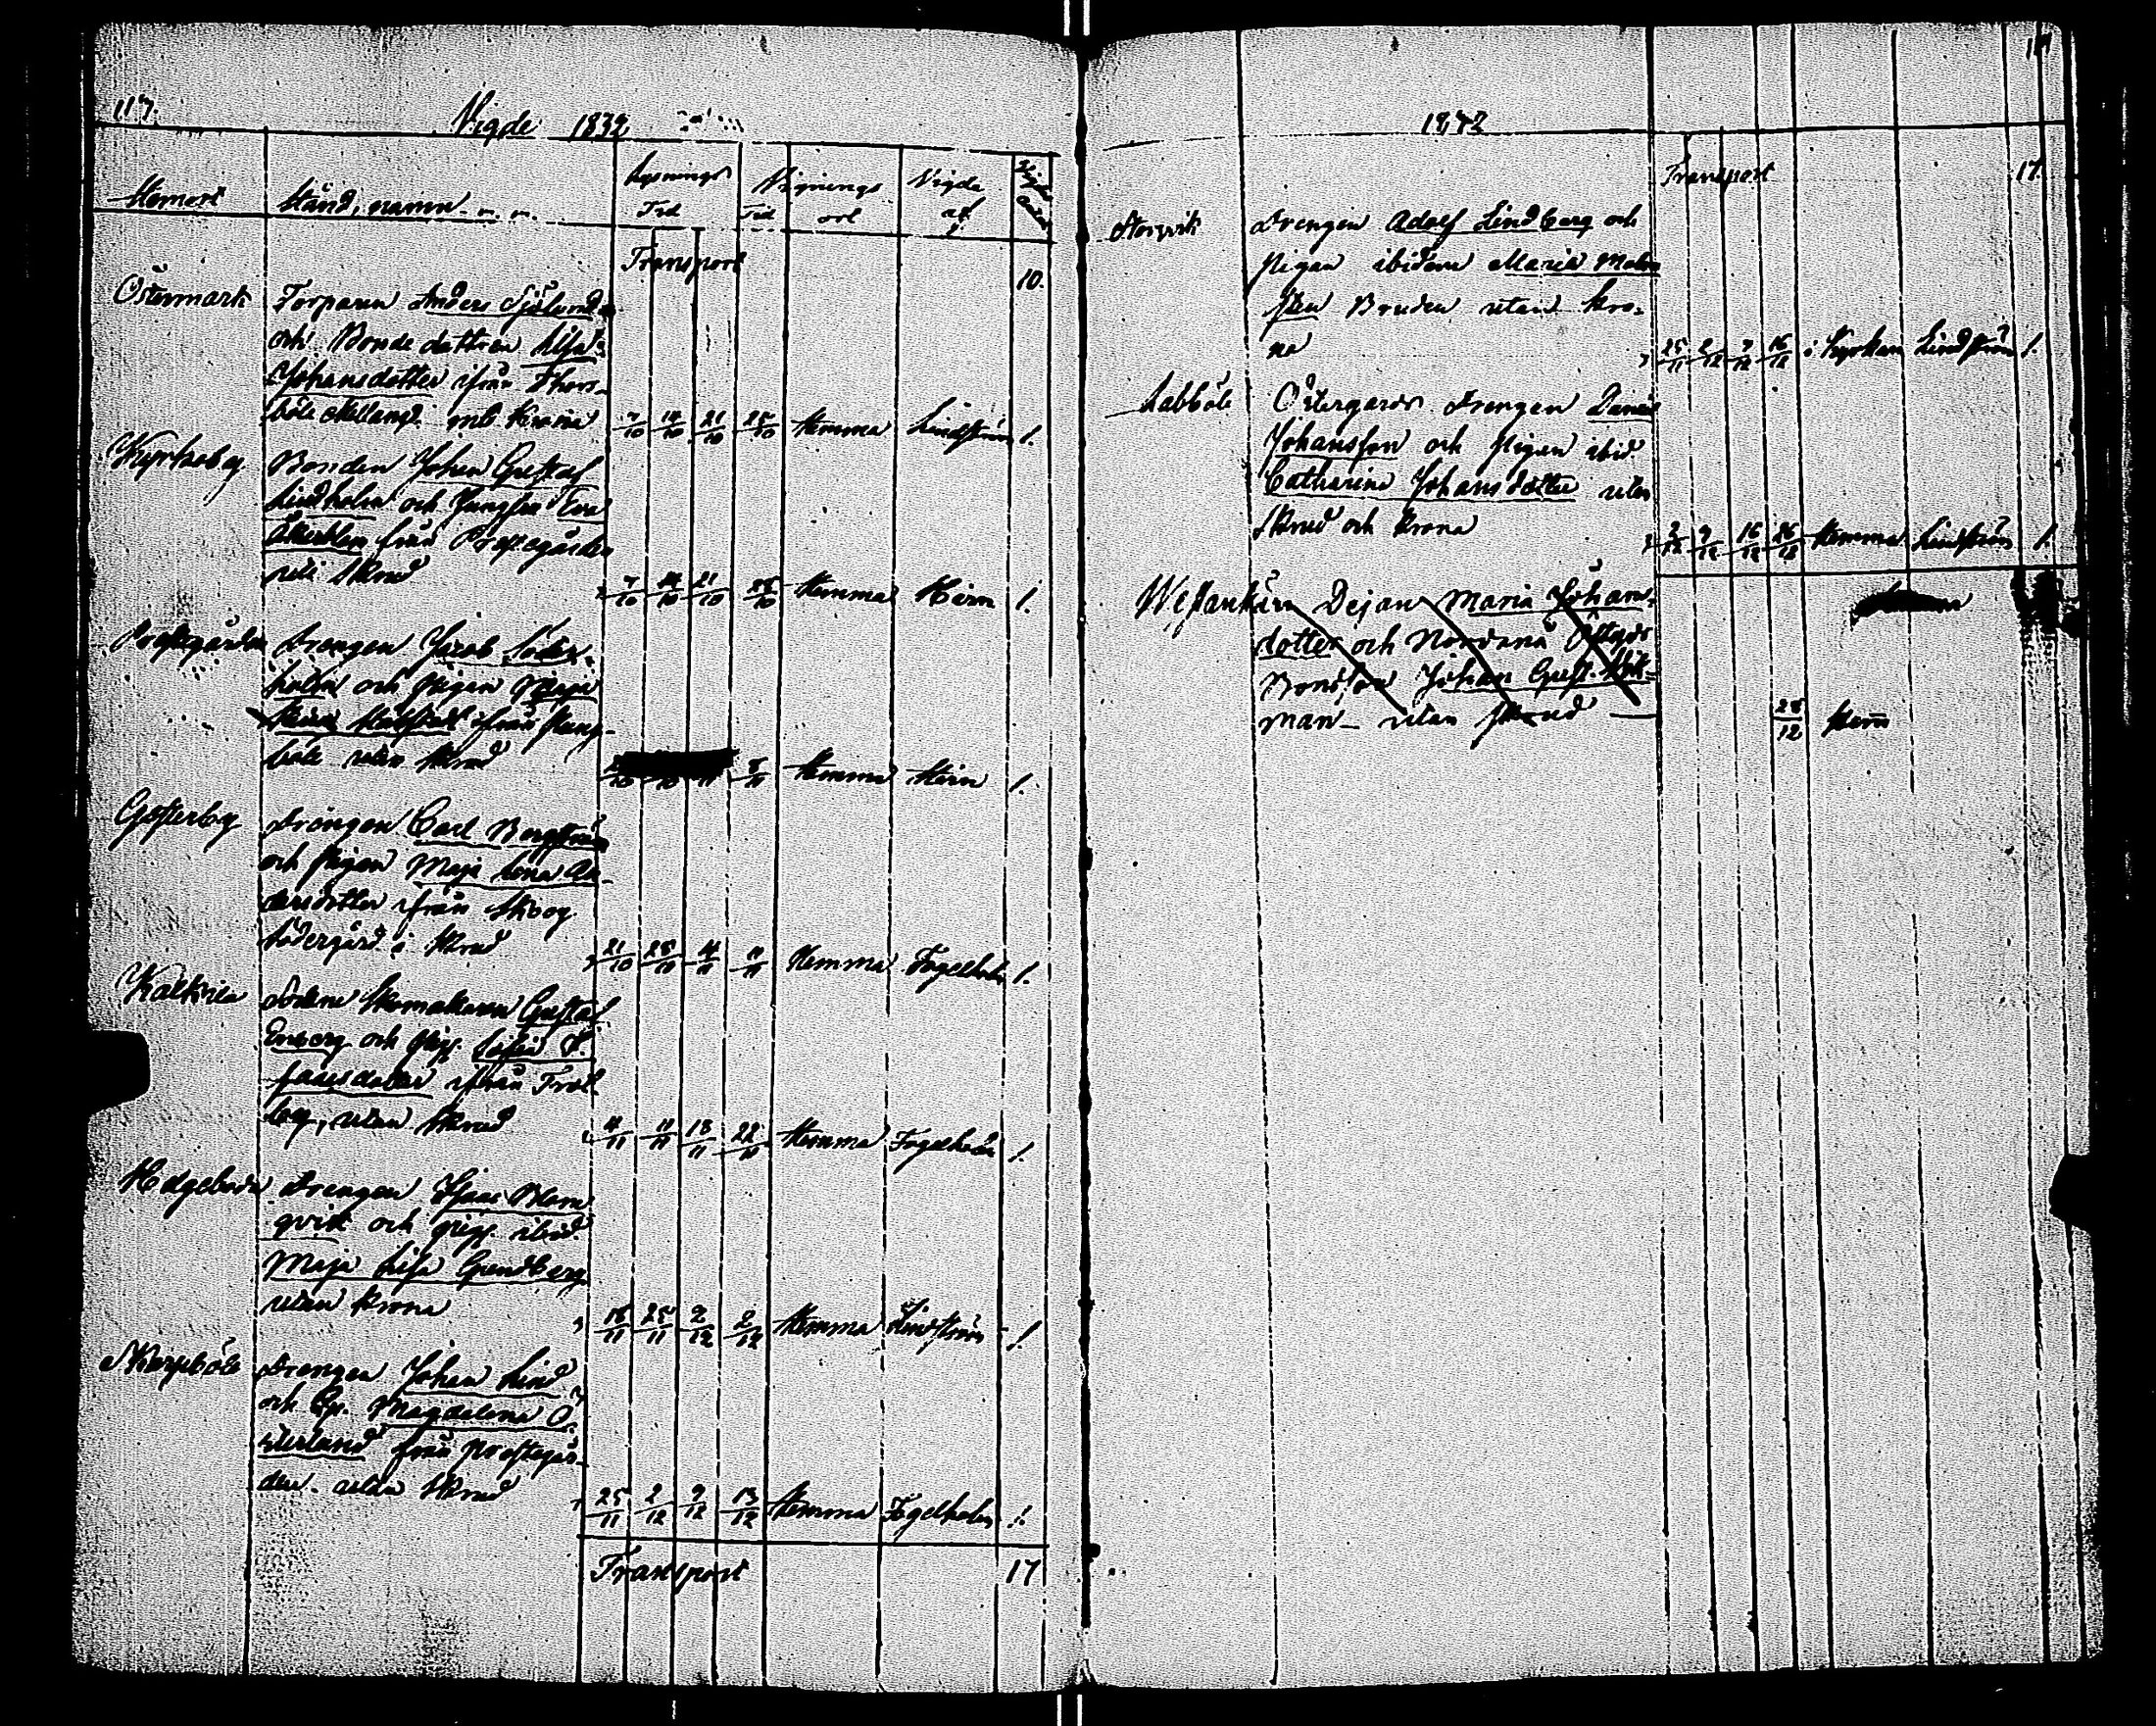 117.
Vigde 1832
Hemort Stånd, namn m. m. Lysnings Tid Vignings Tid ort Vigde af
Transport 10.
Östermark Torparen Anders Sjölund
och Bonde dottren Lisa
Johansdotter ifrån Thors-
böle Mellang. med Krona 7/10 14/10 21/10 25/10 Hemma Lindström 1.
Kyrkoby Bonden Johan Gustaf
Lindholm och Jungfru Eva
Åkerblom från Prostegården
uti Skrud 7/10 14/10 21/10 28/10 Hemma Hirn 1.
Prostegården Drengen Jacob Söder-
holm och Pigan Maja
ifrån
böle utan Skrud 8/11 Hemma Hirn 1.
Gesterby Drängen Carl Bergström
och Pigan Maja Lena An-
dersdotter ifrån Skoog
Södergård i Skrud 21/10 28/11 4/11 11/11 Hemma Fogelholm 1.
Kalkila Skomakaren Gustaf
Enberg och Pig. Sofia
ifrån Tröl-
by, utan Skrud 4/11 11/11 18/11 22/11 Hemma Fogelholm 1.
Helgeboda Drengen Isaac Blom
qvist och Pig. ibid.
Maja Lisa Grundberg
utan Krona 18/11 25/11 2/12 2/12 Hemma Lindström 1.
Skerpböle Drengen Johan Lind
och Magdalena Ö-
sterlund från Prostegår-
den. utan Skrud 25/11 2/12 9/12 13/12 Hemma Fogelholm 1.
Transport 17
1832
Transport 17.
Storvik Drengen Adolf Lindberg och
Pigan ibidem Maria Malm
sten Bruden utan kro-
na 25/11 2/12 9/12 16/12 i Kyrkan Lindström 1.
Labböle Östergards Drengen Daniel
Johansson och Pigan ibid.
Catharina Johansdotter utan
Skrud och Krona 2/12 9/12 16/12 26/12 Hemma Lindström 1.
Westankärr Dejan Maria Johans-
dotter och Norrsnå Östergs
Bondson Johan Gust.
man utan Skrud 28/12 Hem